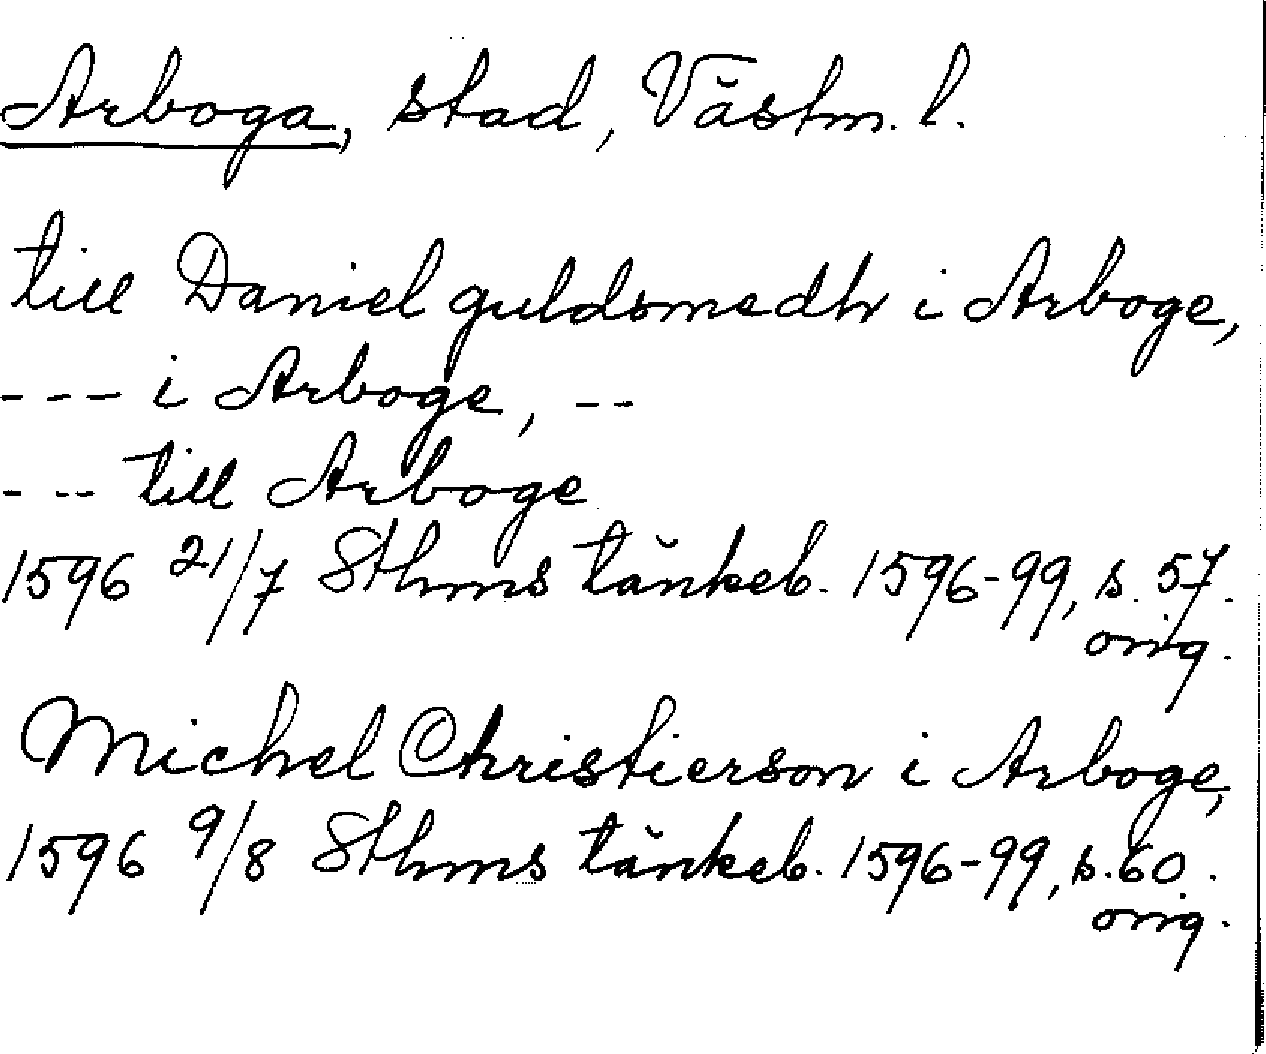 Arboga, stad, Västm. l.
till Daniel guldsmedh i Arboge,
--- i Arboge, --
--- till Arboge
1596 21/7 Sthms tänkeb. 1596-99, s. 57.
orig.
Michel Christierson i Arboge,
1596 9/8 Sthms tänkeb. 1596-99, s. 60.
orig.